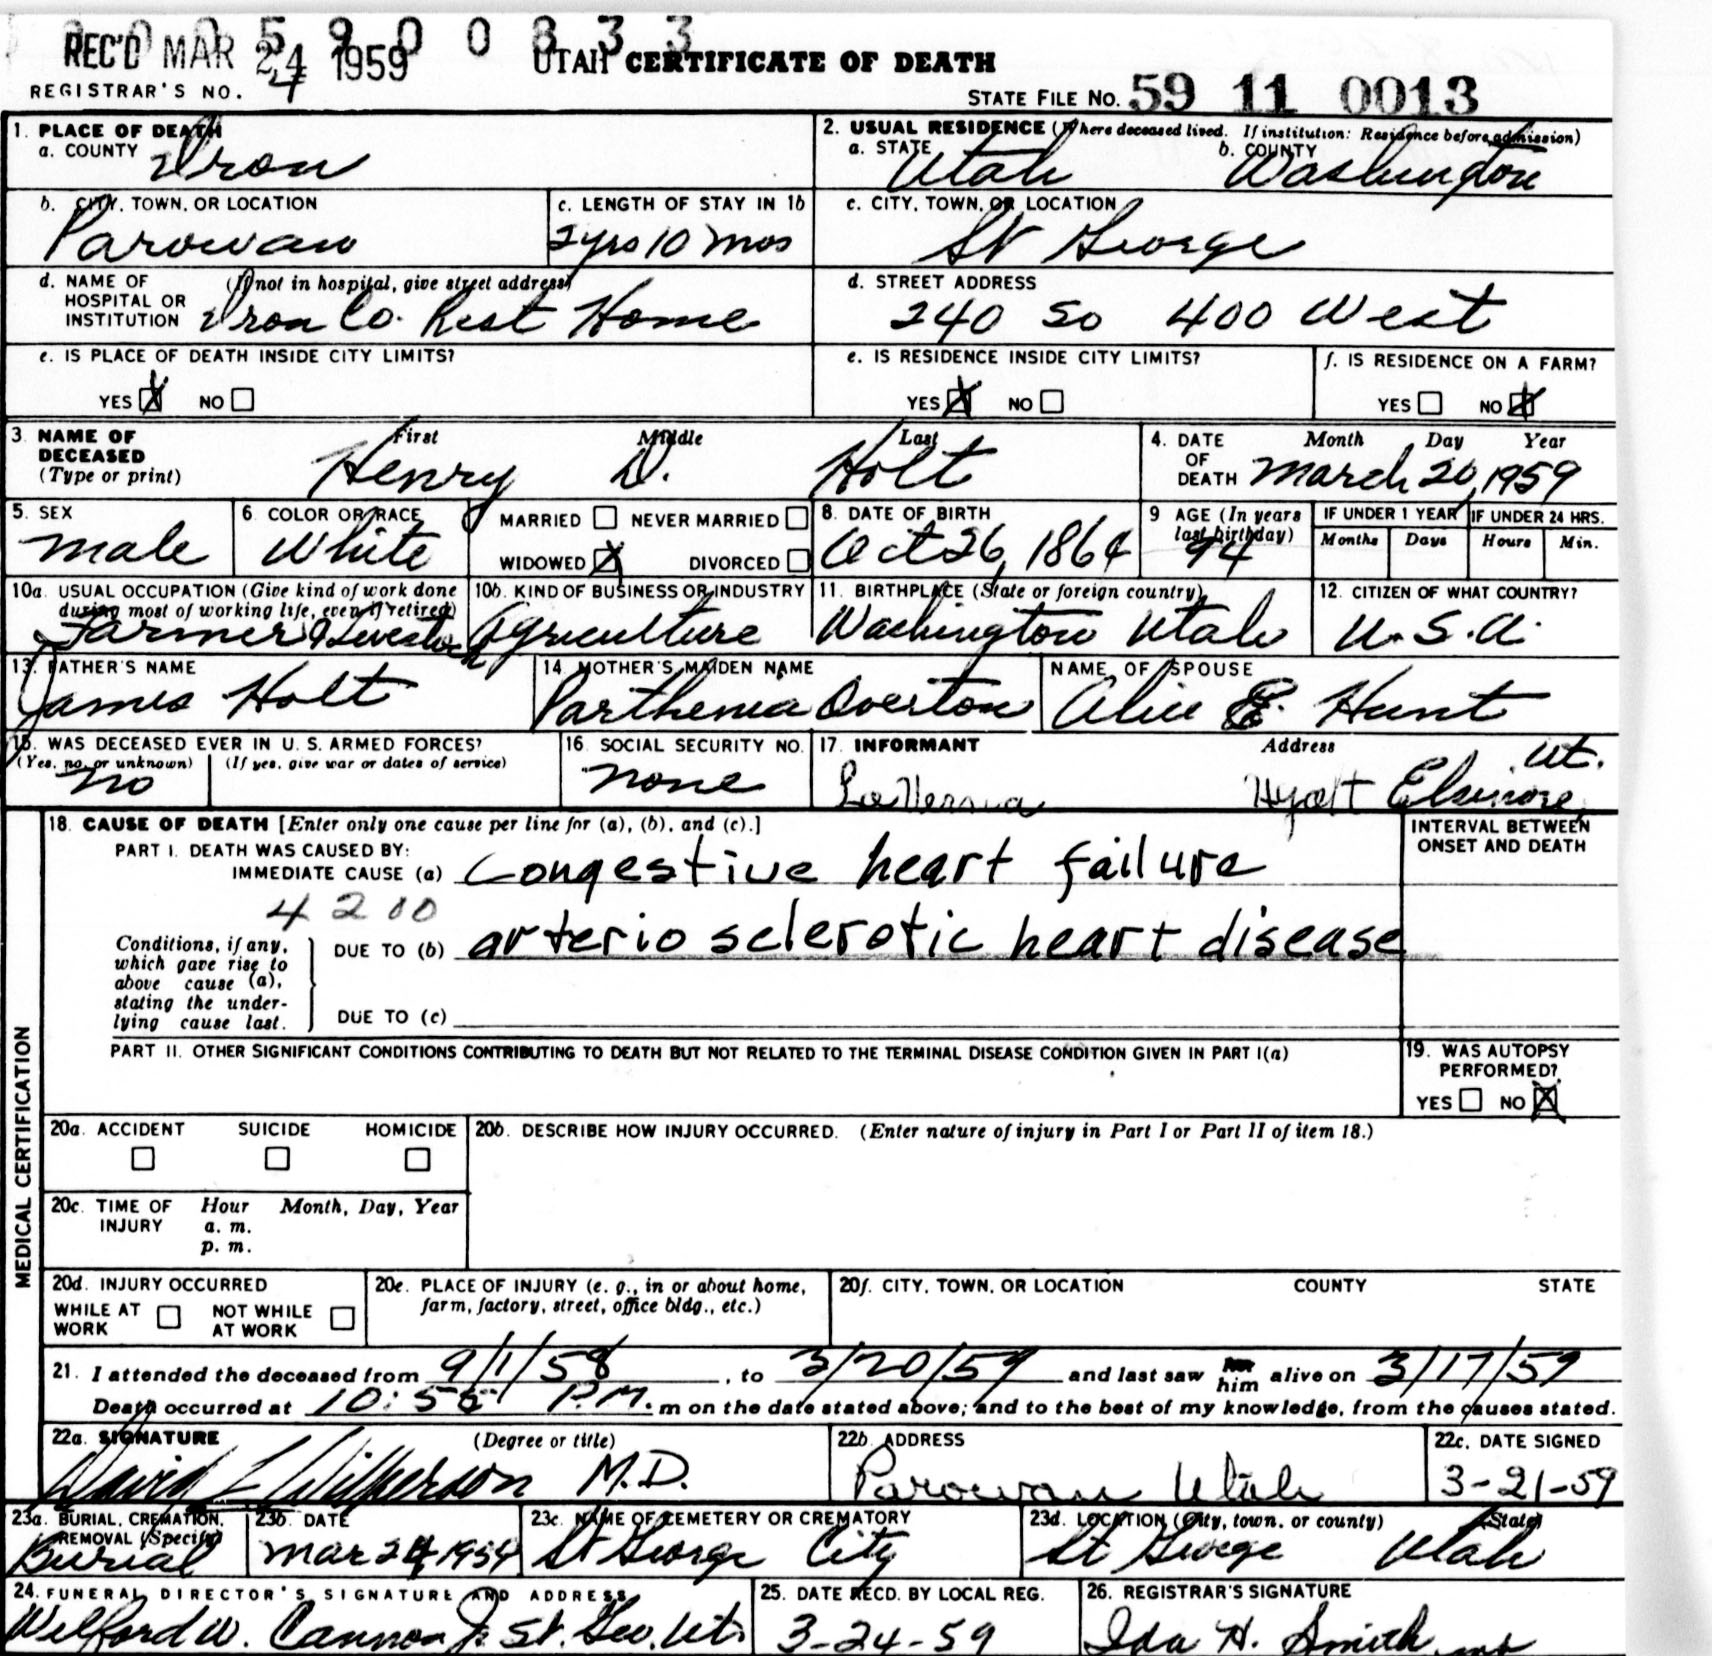 0 0 5 9 0 0 8 3 3
REC'D MAR 24 1959 UTAH CERTIFICATE OF DEATH
REGISTRAR'S NO. 4
STATE FILE NO. 59 11 0013
1. PLACE OF DEATH 2. USUAL RESIDENCE (Where deceased lived. If institution: Residence before admission)
a. COUNTY Iron a. STATE Utah b. COUNTY Washington
b. CITY, TOWN, OR LOCATION c. LENGTH OF STAY IN 1b c. CITY, TOWN, OR LOCATION
Parowan 2 yrs 10 mos St George
d. NAME OF HOSPITAL OR INSTITUTION (If not in hospital, give street address) d. STREET ADDRESS
Iron Co. Rest Home 240 So 400 West
e. IS PLACE OF DEATH INSIDE CITY LIMITS? e. IS RESIDENCE INSIDE CITY LIMITS? f. IS RESIDENCE ON A FARM?
YES X NO YES X NO YES NO X
3. NAME OF DECEASED (Type or print) First Middle Last 4. DATE OF DEATH Month Day Year
Henry D. Holt March 20, 1959
5. SEX 6. COLOR OR RACE MARRIED NEVER MARRIED 8. DATE OF BIRTH 9 AGE (In years last birthday) IF UNDER 1 YEAR IF UNDER 24 HRS.
male White WIDOWED X DIVORCED Oct 26, 1864 94 Months Days Hours Min.
10a. USUAL OCCUPATION (Give kind of work done during most of working life, even if retired) 10b. KIND OF BUSINESS OR INDUSTRY 11. BIRTHPLACE (State or foreign country) 12. CITIZEN OF WHAT COUNTRY?
Farmer & Livestock Agriculture Washington Utah U.S.A.
13. FATHER'S NAME 14 MOTHER'S MAIDEN NAME NAME OF SPOUSE
James Holt Parthenia Overton Alice E. Hunt
15. WAS DECEASED EVER IN U. S. ARMED FORCES? 16. SOCIAL SECURITY NO. 17. INFORMANT Address
(Yes, no, or unknown) (If yes, give war or dates of service)
no none LaVerna Hyatt Elsinore, Ut.
18. CAUSE OF DEATH [Enter only one cause per line for (a), (b), and (c).] INTERVAL BETWEEN ONSET AND DEATH
PART I. DEATH WAS CAUSED BY:
IMMEDIATE CAUSE (a) Congestive heart failure
4200
Conditions, if any, which gave rise to above cause (a), stating the underlying cause last. DUE TO (b) arterio sclerotic heart disease
DUE TO (c)
PART II. OTHER SIGNIFICANT CONDITIONS CONTRIBUTING TO DEATH BUT NOT RELATED TO THE TERMINAL DISEASE CONDITION GIVEN IN PART I(a) 19. WAS AUTOPSY PERFORMED?
YES NO X
MEDICAL CERTIFICATION
20a. ACCIDENT SUICIDE HOMICIDE 20b. DESCRIBE HOW INJURY OCCURRED. (Enter nature of injury in Part I or Part II of item 18.)
20c. TIME OF INJURY Hour Month, Day, Year
a. m.
p. m.
20d. INJURY OCCURRED 20e. PLACE OF INJURY (e. g., in or about home, farm, factory, street, office bldg., etc.) 20f. CITY, TOWN, OR LOCATION COUNTY STATE
WHILE AT WORK NOT WHILE AT WORK
21. I attended the deceased from 9/1/58, to 3/20/59 and last saw him alive on 3/17/59
Death occurred at 10:55 P.M. m on the date stated above; and to the best of my knowledge, from the causes stated.
22a. SIGNATURE (Degree or title) 22b. ADDRESS 22c. DATE SIGNED
David L Wilkerson M.D. Parowan Utah 3-21-59
23a. BURIAL, CREMATION, REMOVAL (Specify) 23b. DATE 23c. NAME OF CEMETERY OR CREMATORY 23d. LOCATION (City, town, or county) (State)
Burial Mar 24, 1959 St George City St George Utah
24. FUNERAL DIRECTOR'S SIGNATURE AND ADDRESS 25. DATE RECD. BY LOCAL REG. 26. REGISTRAR'S SIGNATURE
Welford W. Cannon Jr. St. Geo. Ut. 3-24-59 Ida H. Smith